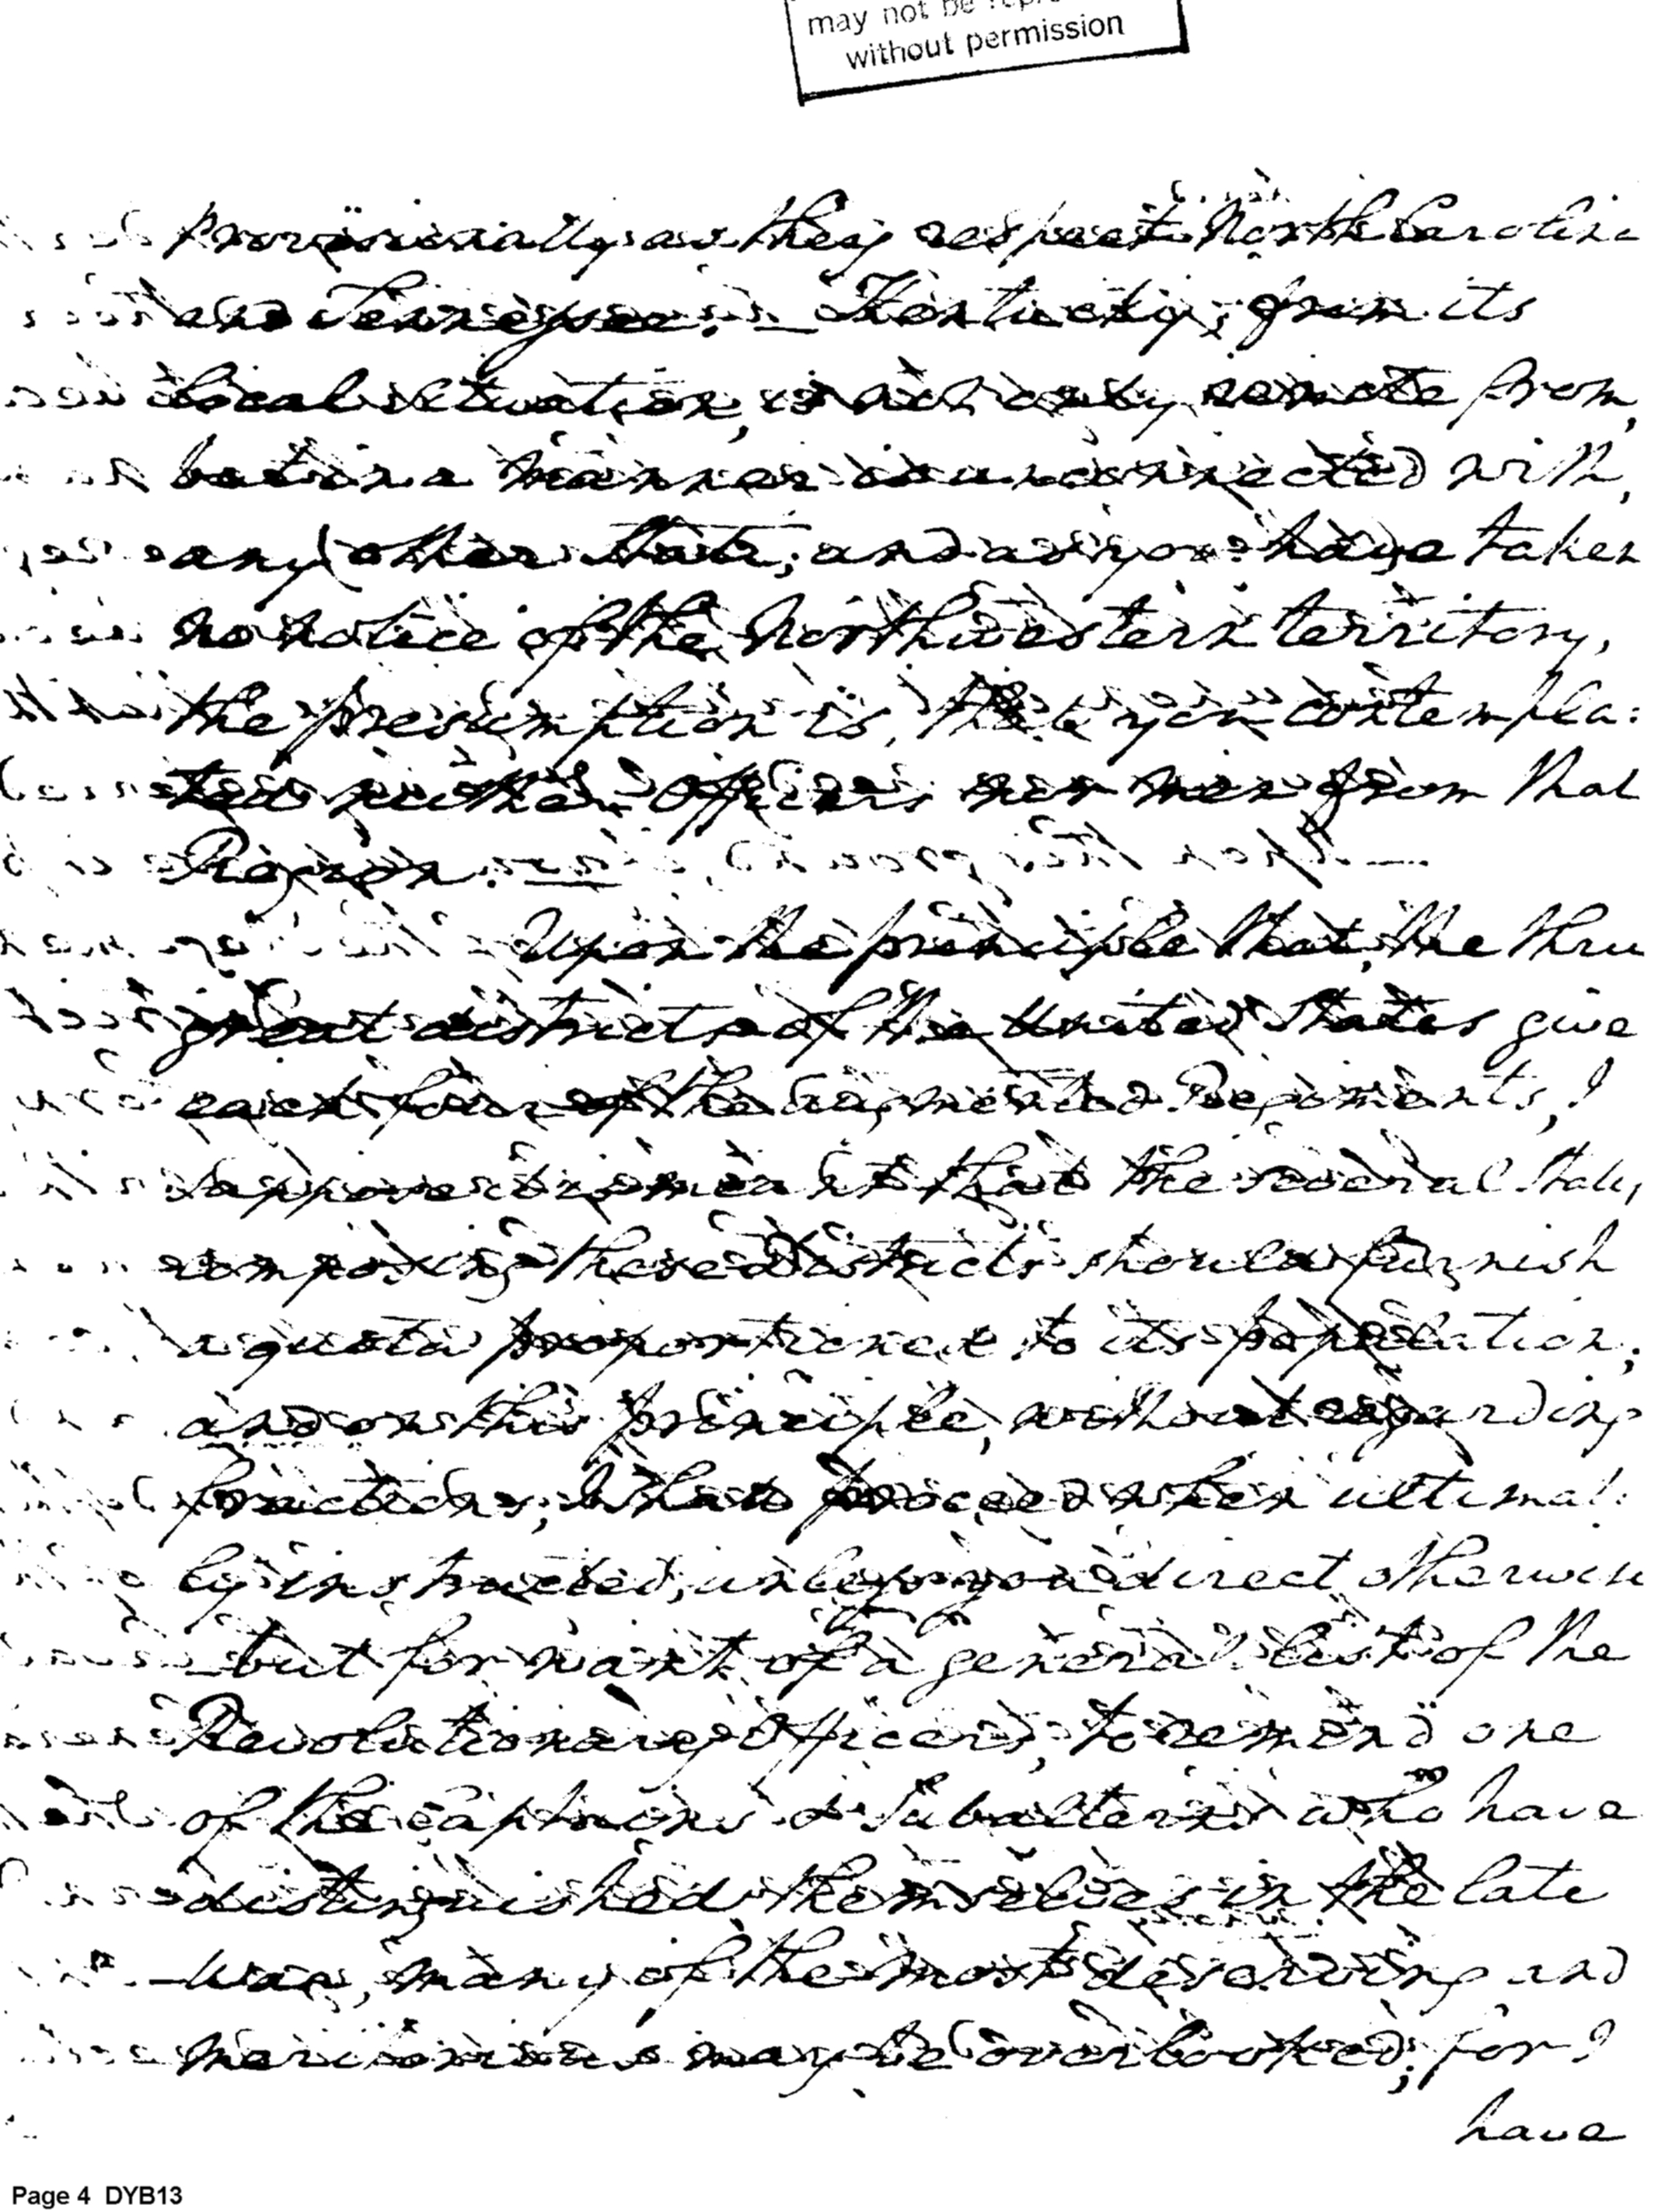 may not be
without permission
provisionally as they respect North Carolina
and Tennessee. — Kentucky, from its
local situation, is not only remote from,
but in a manner is unconnected with,
any other State; and as you have taken
no notice of the Northwestern territory,
the presumption is, that you contempla:
ted neither Officers nor men from that
Region. —
Upon the principle that, the three
great districts of the United States give
each four of the augmented Regiments, I
suppose it is meant that the several States
composing these districts should furnish
a quota proportioned to its population;
and on this principle, without regarding
fractions, I shall proceed when ultimate:
ly instructed, unless you direct otherwise
— but for want of a general list of the
Revolutionary Officers, to remind one
of the captains & Subalterns who have
distinguished themselves in the late
War, many of the most deserving and
meritorious may be overlooked; for I
have
Page 4 DYB13